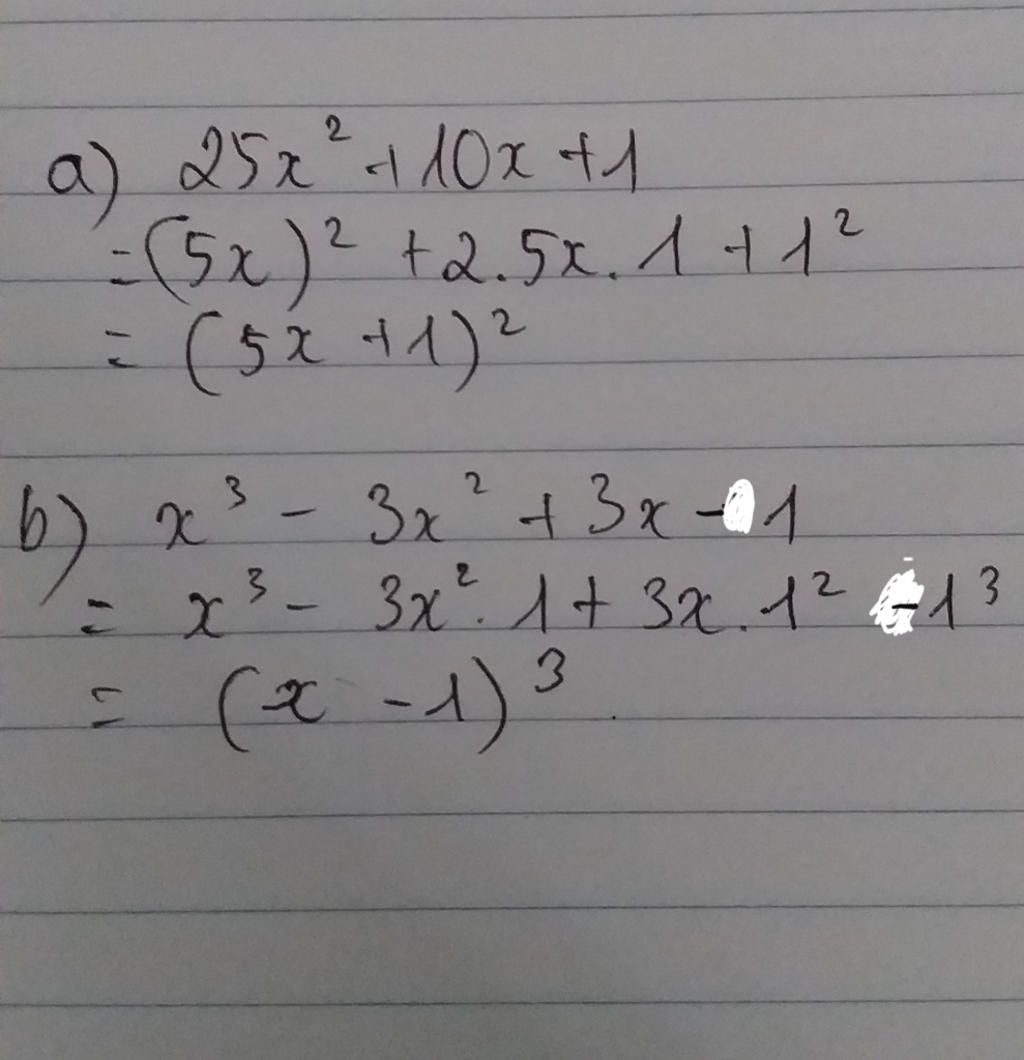 a) 25x² + 10x + 1
= (5x)² + 2.5x.1 + 1²
= (5x + 1)²
b) x³ - 3x² + 3x - 1
= x³ - 3x².1 + 3x.1² - 1³
= (x - 1)³.